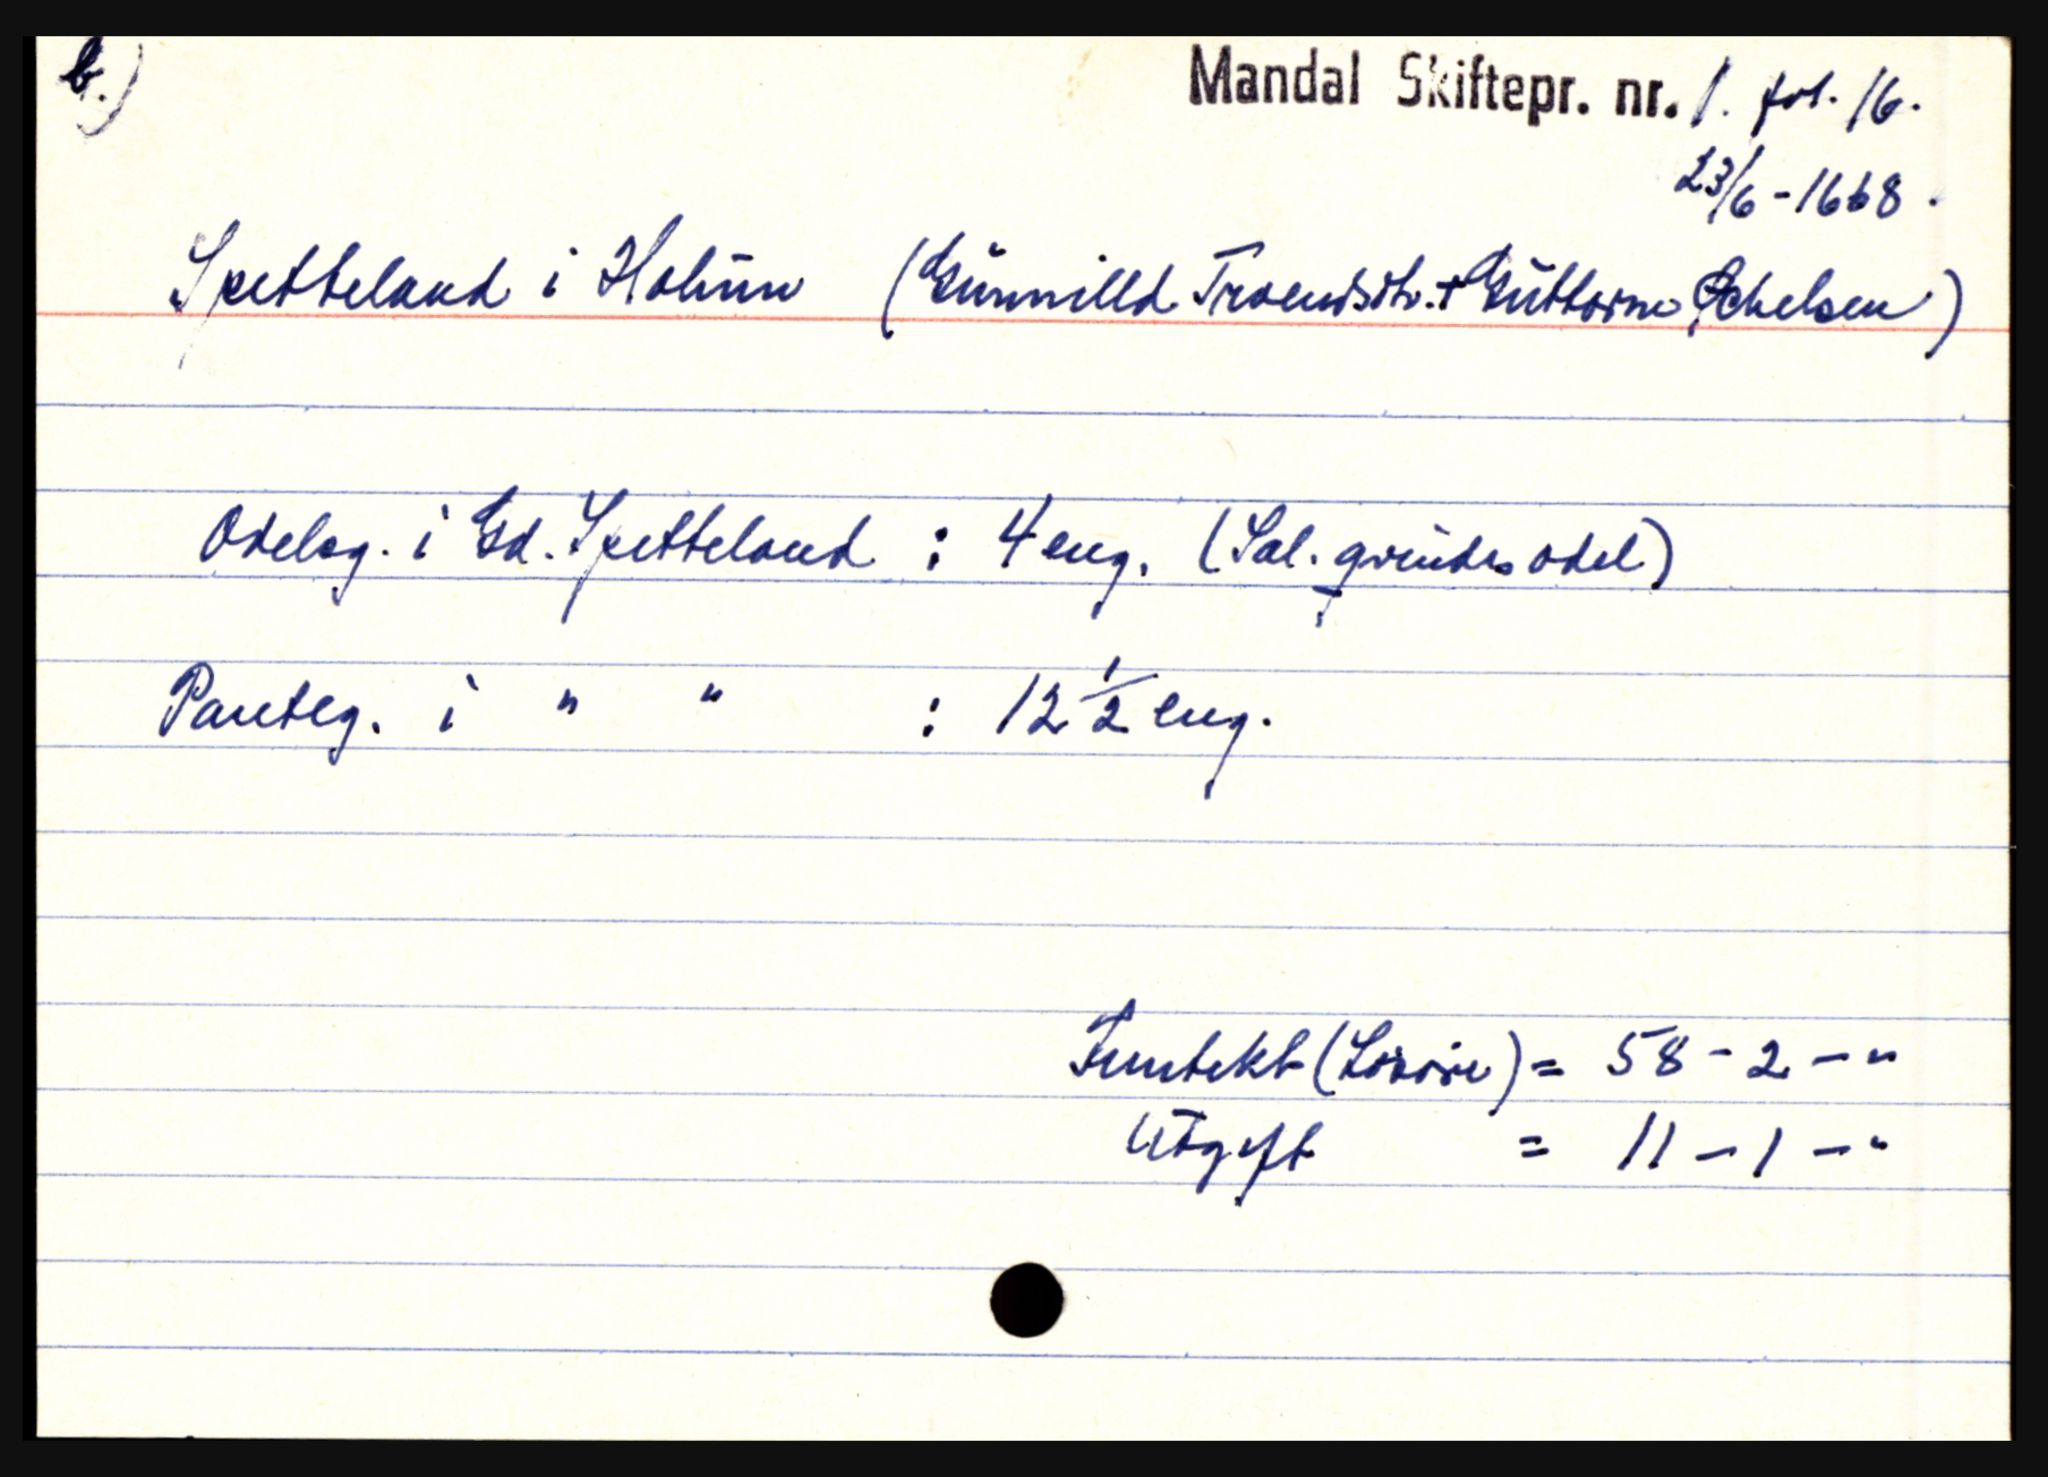 b.)
Mandal Skiftepr. nr. 1. fol. 16.
23/6-1668.
Spetteland i Holum (Gunnilld Troendsdtr. + Guttorm Ochelsen)
Odelsg. i Gd. Spetteland : 4 eng. (Sal. qvindes odel)
Panteg. i " " : 12 1/2 eng.
Inntekt (Løsøre) = 58 - 2 - "
Utgift = 11 - 1 - "